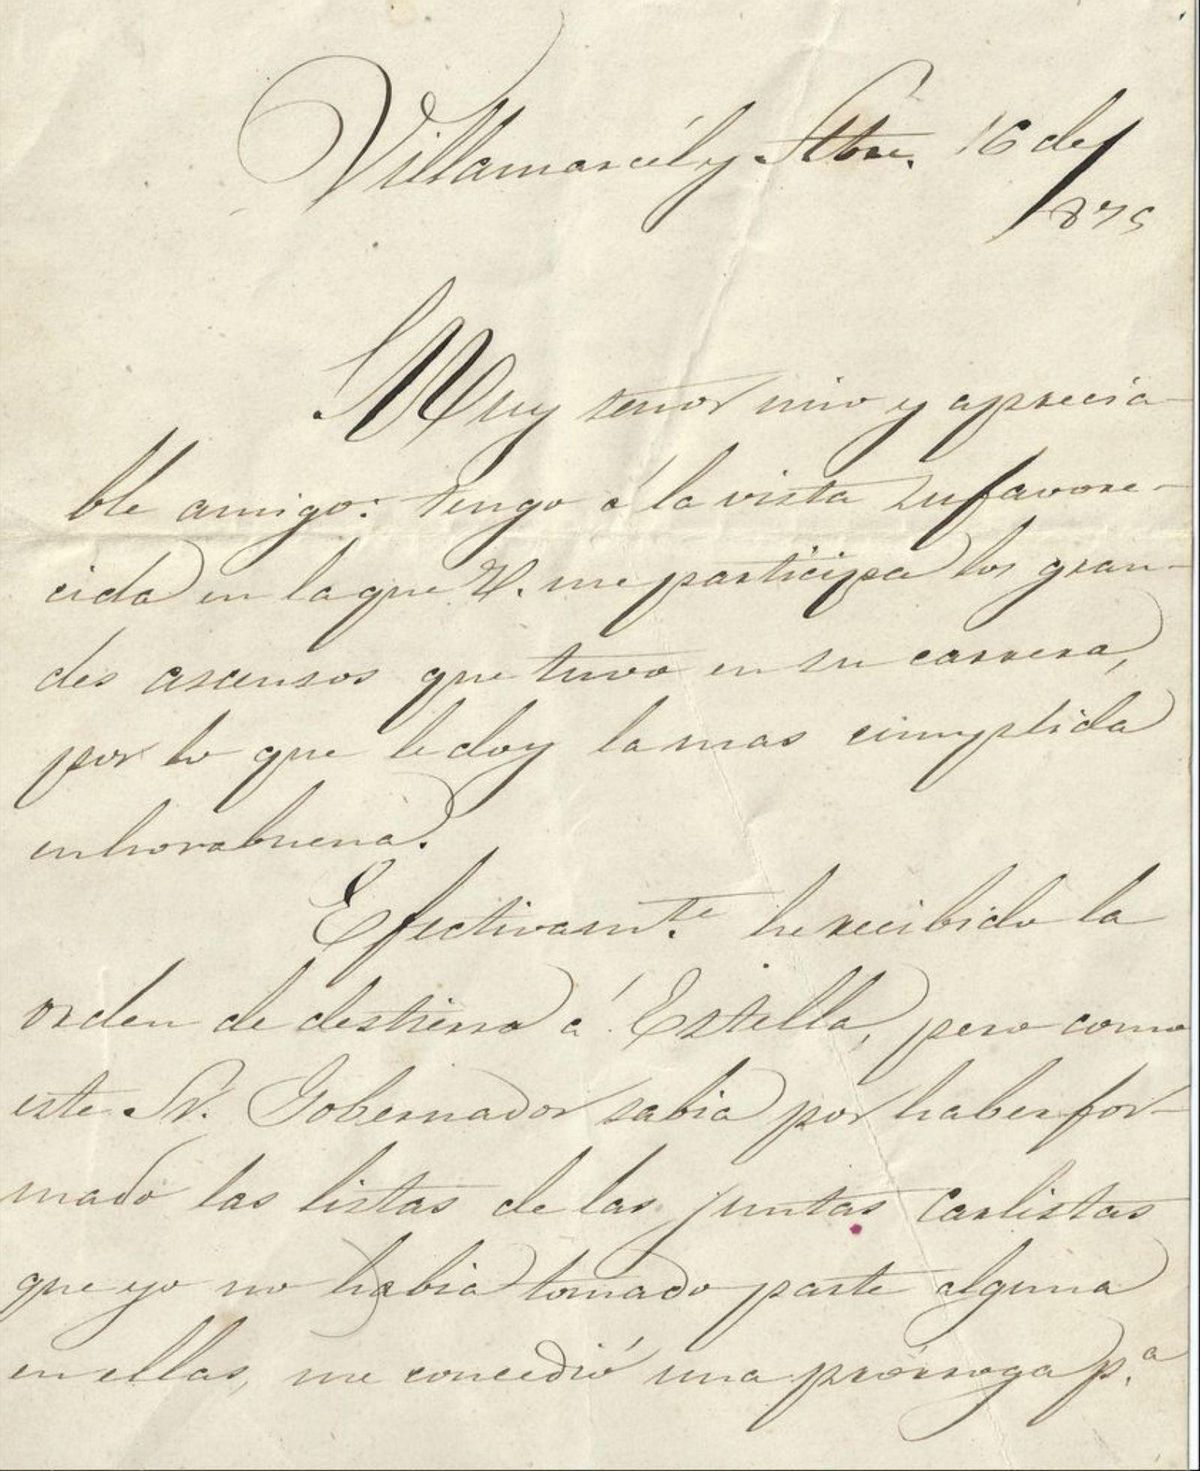 Villamarcél y Stbre. 16 de
1875
Muy señor mio y aprecia-
ble amigo: tengo á la vista su favore-
cida en la que V. me participa los gran-
des ascensos que tuvo en su carrera,
por lo que le doy la mas cumplida
enhorabuena.
Efectivamte. he recibido la
orden de destierro á Estella, pero como
este Sr. Gobernador sabia por haber for-
mado las listas de las juntas carlistas
que yo no habia tomado parte alguna
en ellas, me concedió una prórroga p.a